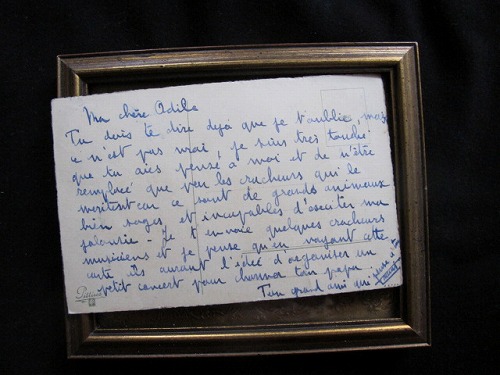 Ma chère Odile
Tu dois te dire dejà que je t'oublie, mais
ce n'est pas vrai, je suis très touché
que tu aies pensé à moi et de n'être
remplacé que par les cracheurs qui le
meritent car ce sont de grands animaux
bien sages et incapables d'exciter ma
jalousie - Je t'envoie quelques cracheurs
musiciens et je pense qu'en voyant cette
carte ils auront l'idée d'organiser un
petit concert pour charmer ton papa
Ton grand ami qui pense à toi